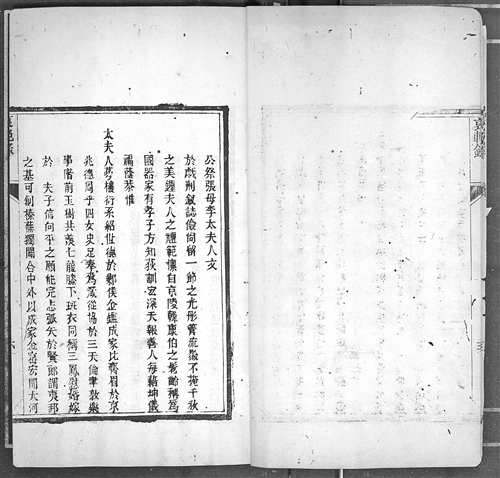 公祭張母李太夫人文
於戲荆釵誌儉尚留一節之光彤管流徽不掩千秋
之美鍾夫人之禮範儀自京陵韓康伯之髫齡稱為
國器家有孝子方知荻訓宏深天報善人每藉坤儀
福蔭恭惟
太夫人夢樓衍系紹世德於鄴侯企鑑成家比齊眉於京
兆德冏乎四女史足奉為箴從協於三天倫聿敦樂
事階前玉樹共羨七龍膝下班衣同稱三鳳尉婚嫁
於 夫子信向平之願能完志弧矢於賢郎謂夷邦
之基可制榛蕪獨闢合中外以成家金窑宏開大河
哀輓錄